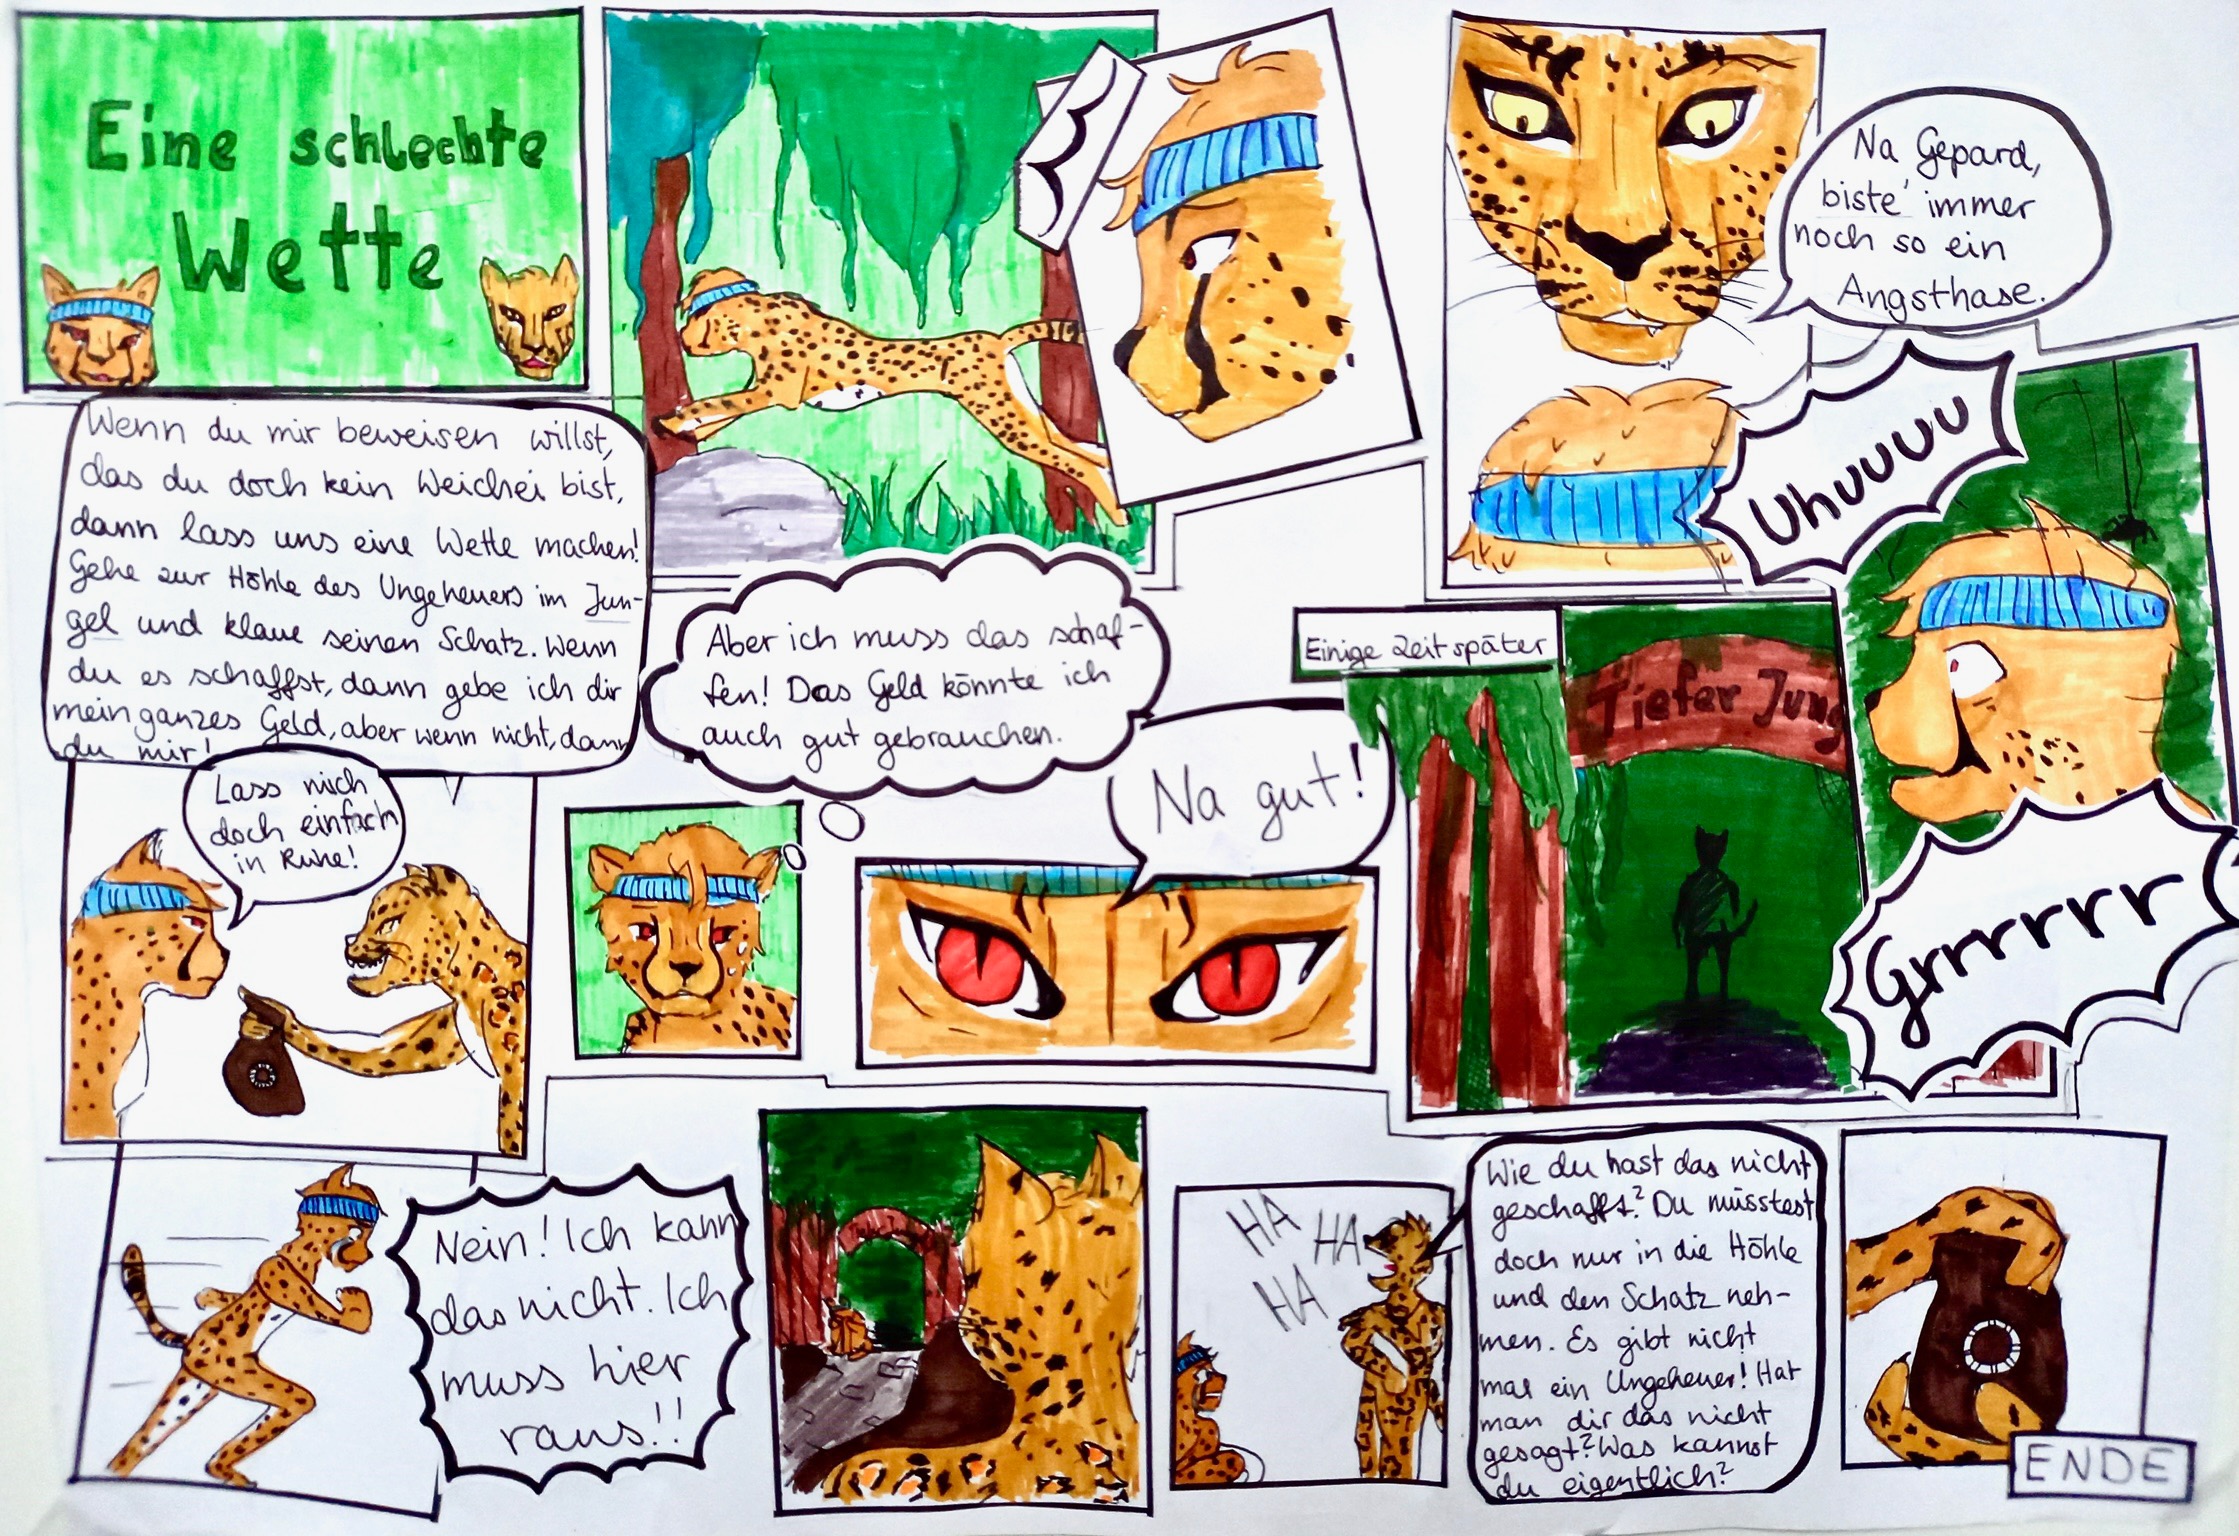 Eine schlechte
Wette
Na Gepard,
biste' immer
noch so ein
Angsthase.
Wenn du mir beweisen willst,
das du doch kein Weichei bist,
dann lass uns eine Wette machen!
Gehe zur Höhle des Ungeheuers im Jun-
gel und klaue seinen Schatz. Wenn
du es schaffst, dann gebe ich dir
mein ganzes Geld, aber wenn nicht, dann
du mir!
Lass mich
doch einfach
in Ruhe!
Aber ich muss das schaf-
fen! Das Geld könnte ich
auch gut gebrauchen.
Na gut!
Einige Zeit später
Tiefer Jung
Uhuuuu
Grrrrrr
Nein! Ich kann
das nicht. Ich
muss hier
raus!!
HA
HA
HA
Wie du hast das nicht
geschafft? Du müsstest
doch nur in die Höhle
und den Schatz neh-
men. Es gibt nicht
mal ein Ungeheuer! Hat
man dir das nicht
gesagt? Was kannst
du eigentlich?
ENDE